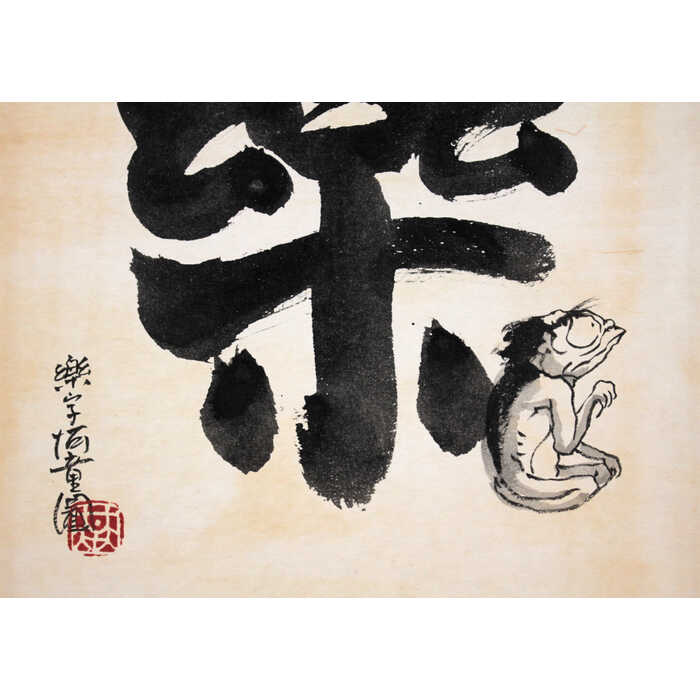 樂
樂字河童